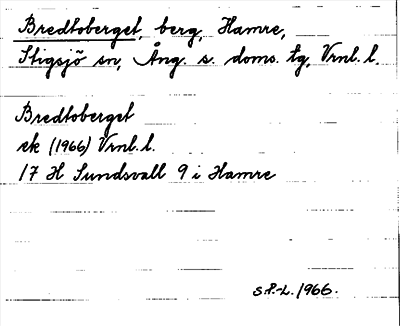 Bredtoberget, berg, Hamre,
Stigsjö sn, Ång. s. doms. tg, Vrnl. l.
Bredtoberget
ek (1966) Vrnl. l.
17 H Sundsvall 9 i Hamre
S.P.-L. 1966.